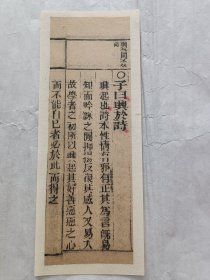 ○子曰興於詩
興起也詩本性情有邪有正其為言既易
知而吟詠之間抑揚反復其感人又易入
故學者之初所以興起其好善惡惡之心
而不能自已者必於此而得之